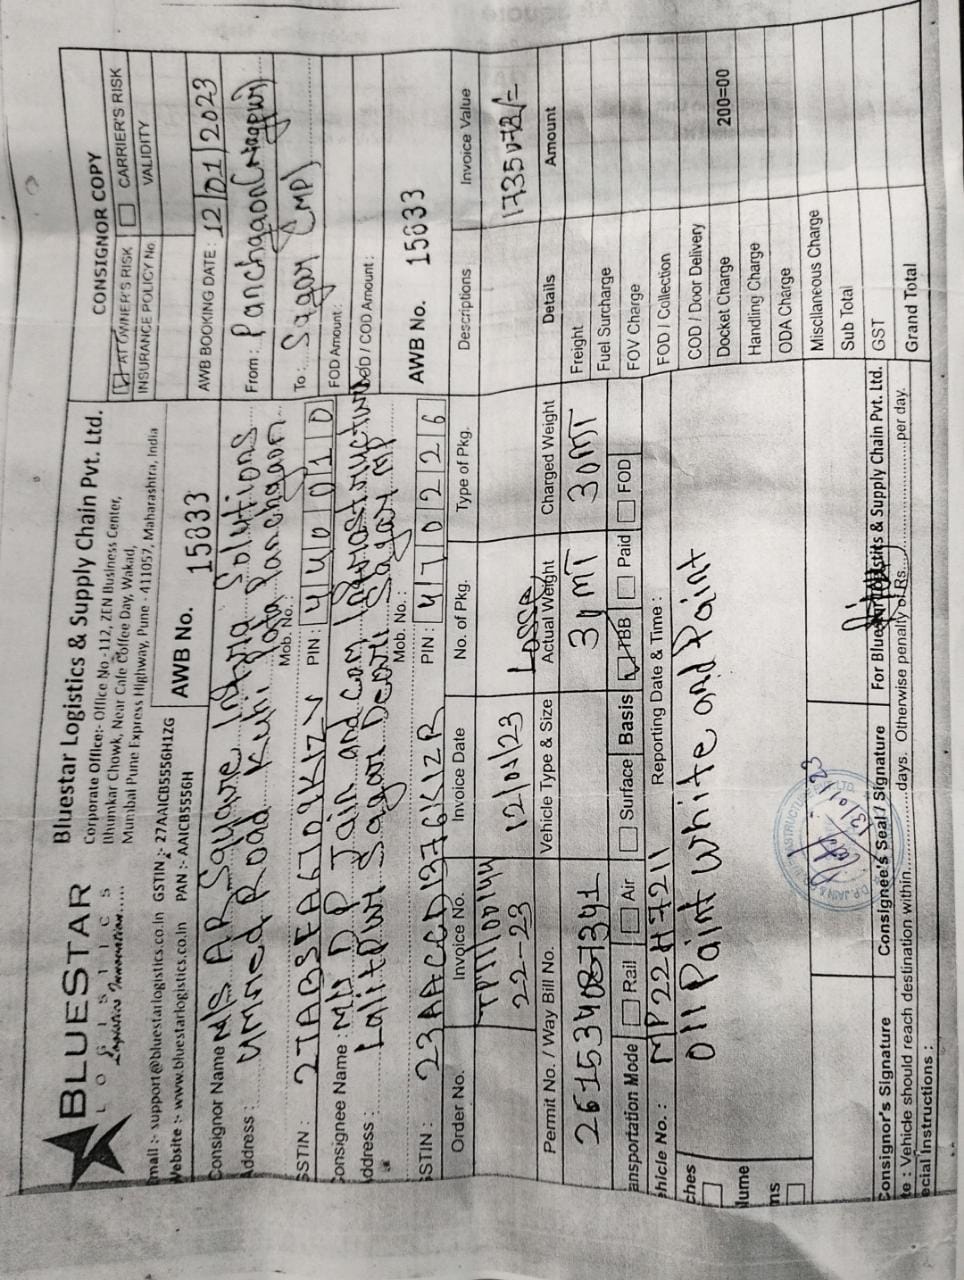 BLUESTAR
LOGISTICS
Logistics Innovation......
Bluestar Logistics & Supply Chain Pvt. Ltd.
Corporate Office:- Office No -112, ZEN Business Center,
Bhumkar Chowk, Near Cafe Coffee Day, Wakad,
Mumbai Pune Express Highway, Pune - 411057, Maharashtra, India
mail :- support@bluestarlogistics.co.in GSTIN :- 27AAICB5556H1ZG
Website :- www.bluestarlogistics.co.in PAN :- AAICB5556H
AWB No. 15833
CONSIGNOR COPY
AT OWNER'S RISK CARRIER'S RISK
INSURANCE POLICY No. VALIDITY
AWB BOOKING DATE : 12/01/2023
Consignor Name M/S AR Square Infra Solutions
Address : Umred Road Kuhi Pata Panchgaon
Mob. No. :
GSTIN : 27ABSFA6710K1ZV PIN : 440010
From : Panchgaon (Nagpur)
To : Sagar (MP)
FOD Amount :
Consignee Name : M/s D P Jain and Com Infrastructure
Address : Lalitpur Sagar Deori Sagar MP
Mob. No. :
GSTIN : 23AACCD1376K1ZR PIN : 470226
COD / COD Amount :
AWB No. 15833
Order No. Invoice No. Invoice Date No. of Pkg. Type of Pkg. Descriptions Invoice Value
22-23 12/01/23 Loose 1735078/-
Permit No. / Way Bill No. Vehicle Type & Size Actual Weight Charged Weight Details Amount
261534087391 34 MT 30MT Freight
Fuel Surcharge
ansportation Mode Rail Air Surface Basis TBB Paid FOD FOV Charge
ehicle No. : MP22H7211 Reporting Date & Time : FOD / Collection
Oil Paint white and Paint
COD / Door Delivery
Docket Charge 200=00
Handling Charge
ODA Charge
Miscllaneous Charge
Sub Total
GST
Grand Total
ches
lume
ns
13/01/23
Consignor's Signature Consignee's Seal / Signature For Bluestar Logistics & Supply Chain Pvt. Ltd.
te : Vehicle should reach destination within..........days. Otherwise penalty of Rs..........per day.
ecial Instructions :